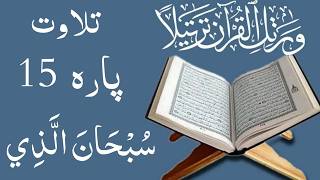 تلاوت
پارہ 15
سُبْحَانَ الَّذِي
وَرَتِّلِ الْقُرْآنَ تَرْتِيلًا